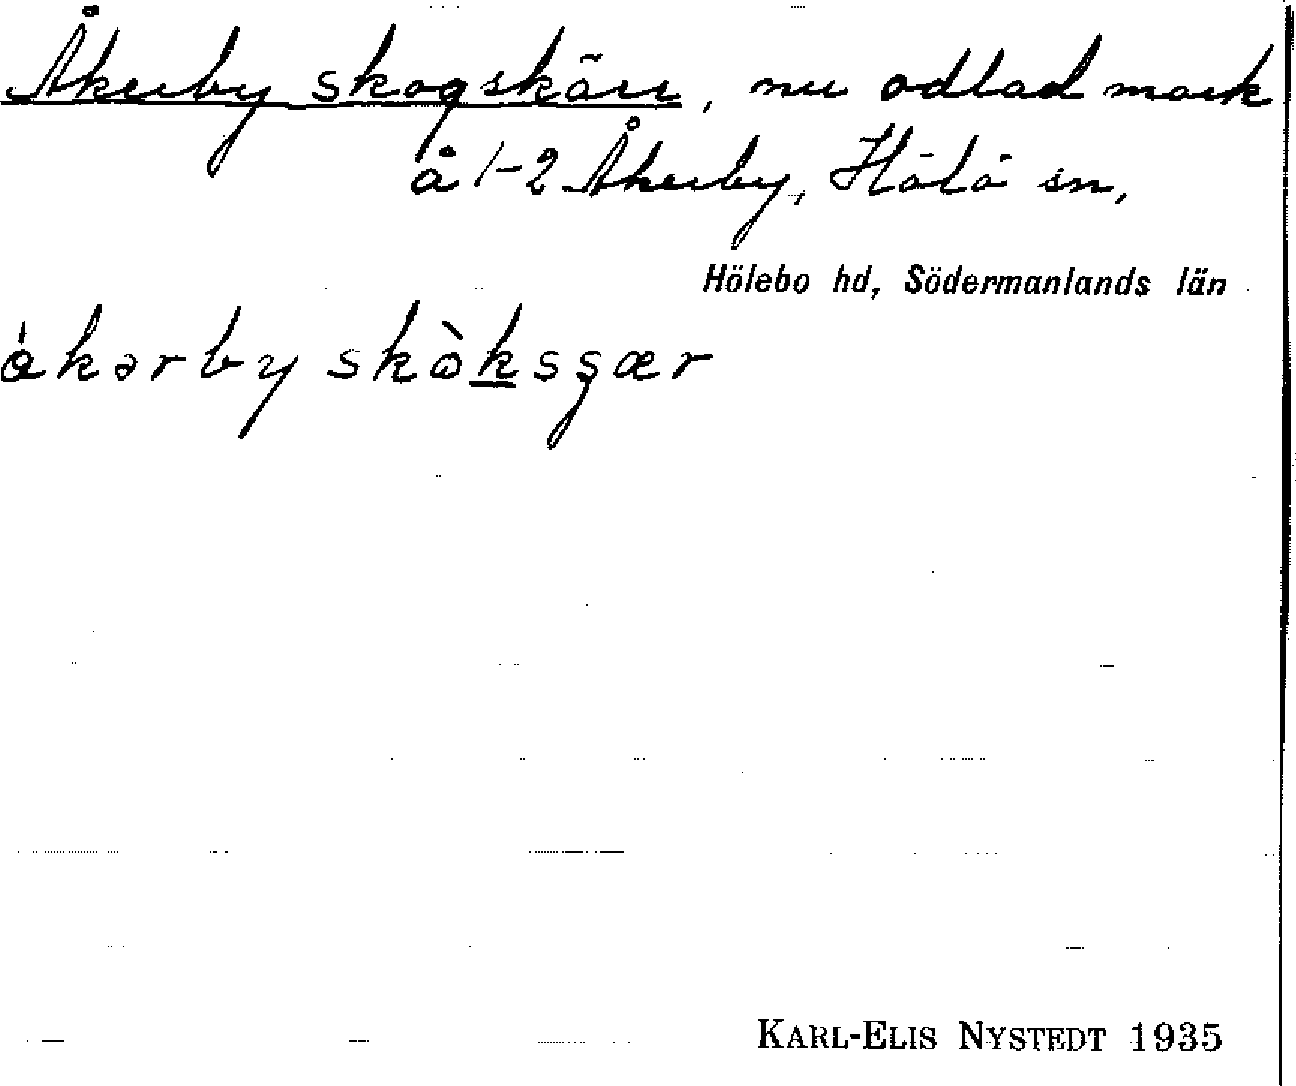 Åkerby skogskärr, nu odlad mark
å 1-2 Åkerby, Hölö sn,
Hölebo hd, Södermanlands län
åkərby skò̀ksʂær
KARL-ELIS NYSTEDT 1935